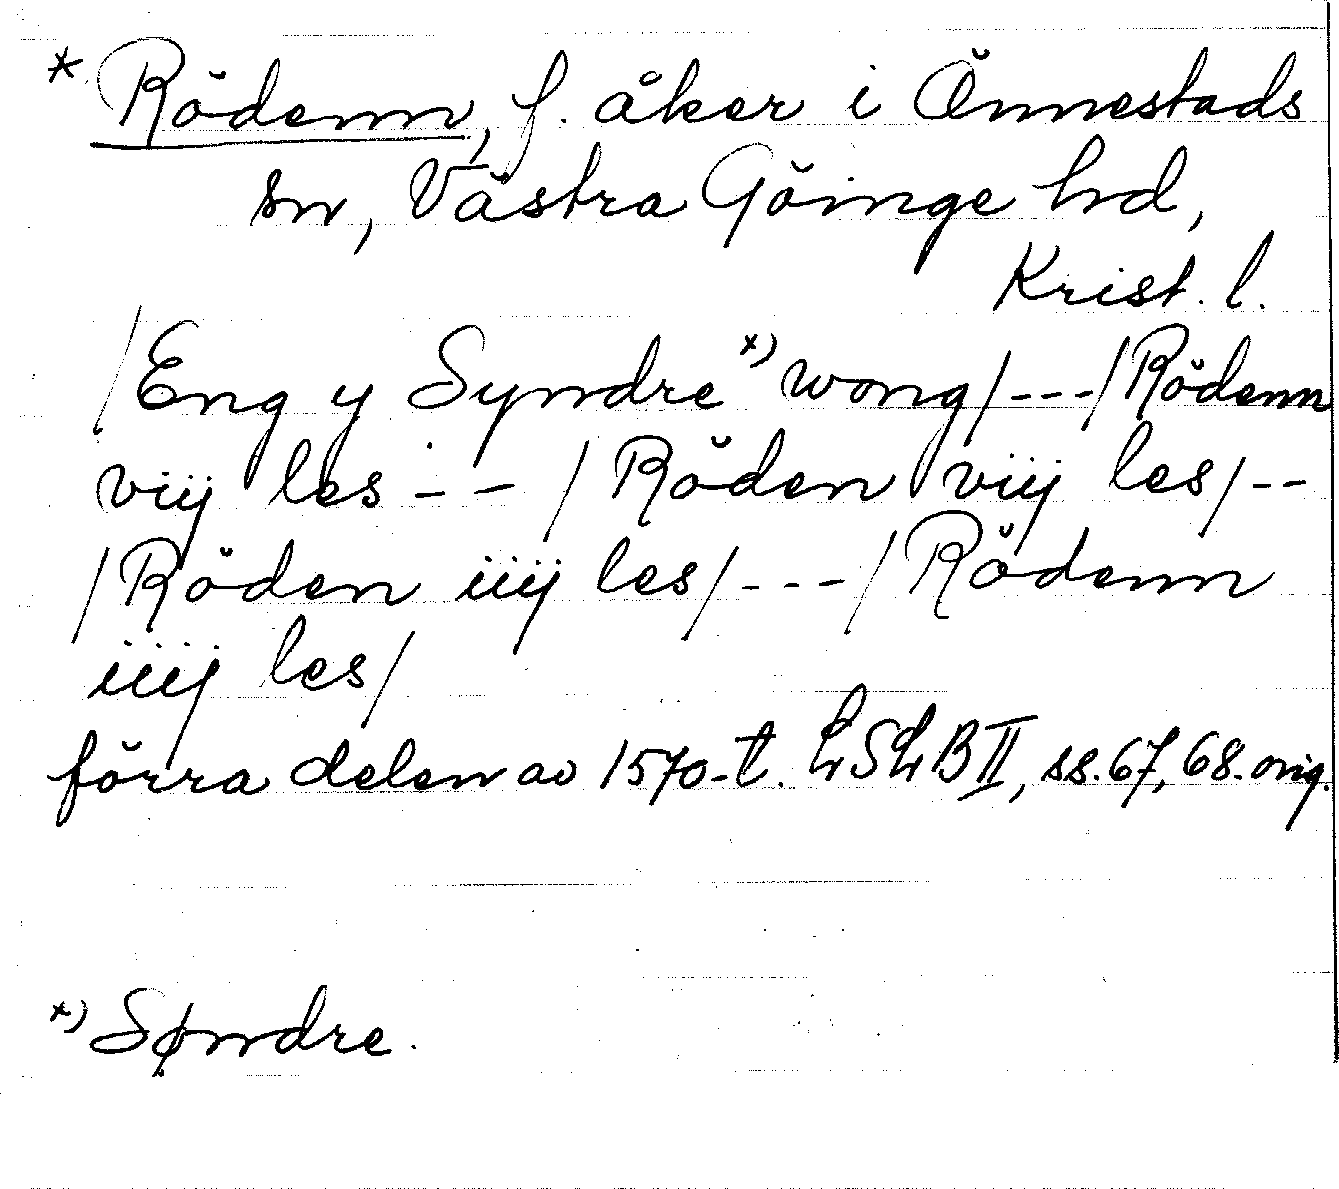 * Rödenn, f. åker i Önnestads
sn, Västra Göinge hd,
Krist. l.
/Eng y Syndre x) wong/---/Rödenn
viij les -- /Röden viij les/--
/Röden iiij les/---/Rödenn
iiij les/
förra delen av 1570-t. LSLB II, ss. 67, 68. orig.
x) Søndre.